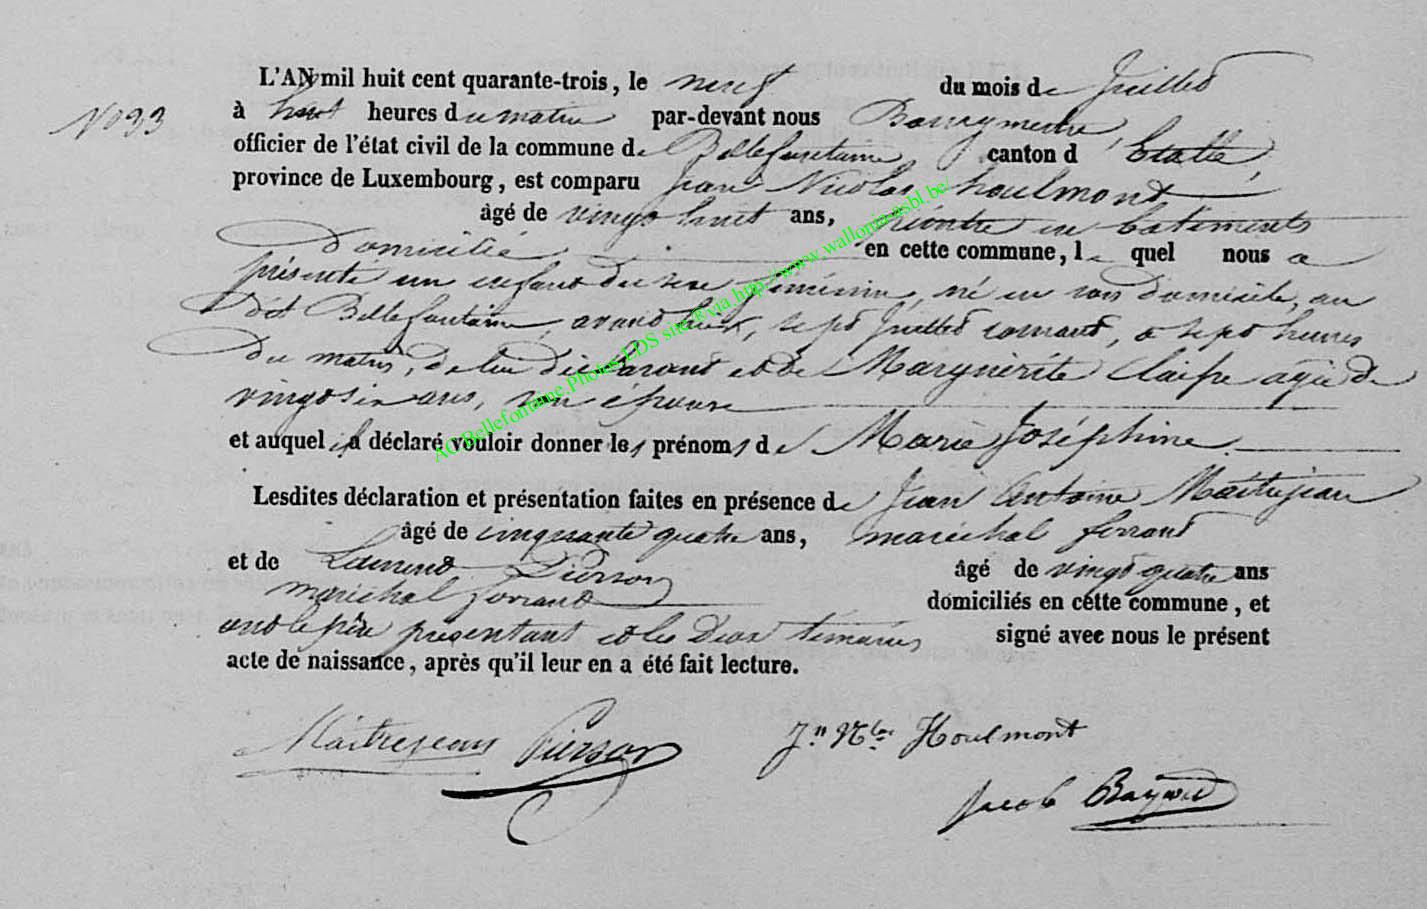 N° 93
L'AN mil huit cent quarante-trois, le neuf du mois de Juillet
à huit heures du matin par-devant nous Bourgmestre,
officier de l'état civil de la commune de Bellefontaine, canton d'Etalle,
province de Luxembourg, est comparu Jean Nicolas houlmont
âgé de vingt huit ans, peintre en batiments
domicilié en cette commune, le quel nous a
présenté un enfant du sexe féminin, né en son domicile, au
dit Bellefontaine, avant hier, sept Juillet courant, a sept heures
du matin, de lui déclarant et de Marguerite Claisse agée de
vingt six ans, son épouse
et auquel il a déclaré vouloir donner les prénoms de Marie Joséphine.
Lesdites déclaration et présentation faites en présence de Jean Antoine Maitrejean
âgé de cinquante quatre ans, maréchal ferrant
et de Laurent Pierson âgé de vingt quatre ans
maréchal ferrant domiciliés en cette commune, et
ont le père présentant et les deux témoins signé avec nous le présent
acte de naissance, après qu'il leur en a été fait lecture.
Maitrejean Pierson Jn Nlas Houlmont
Jacob Bayard
AC Bellefontaine, Photos LDS site ® via http://www.wallonia-asbl.be/